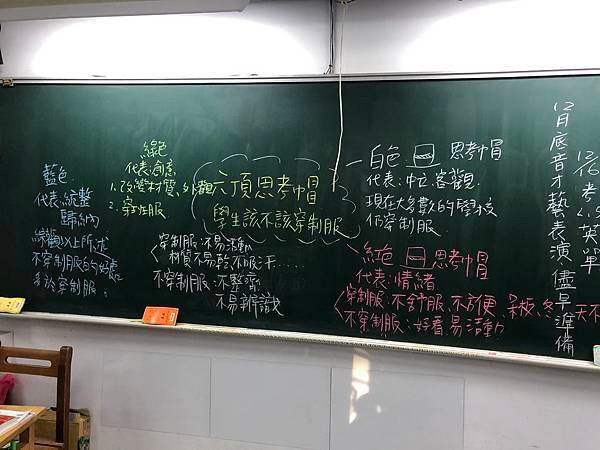 六頂思考帽
學生該不該穿制服
白色 思考帽
代表:中立、客觀
現在大多數的學校
仍穿制服
紅色 思考帽
代表:情緒
穿制服:不舒服、不方便、呆板、冬天不
不穿制服:好看、易活動
穿制服:不易活動
材質不易乾、不吸汗......
不穿制服:不整齊
不易辨識
綠色
代表:創意
1.改變材質、外觀
2.穿全性服
藍色
代表:統整
歸納
綜觀以上所述
不穿制服的好處
多於穿制服。
12月底音才藝表演 儘早準備
12/16考
英單